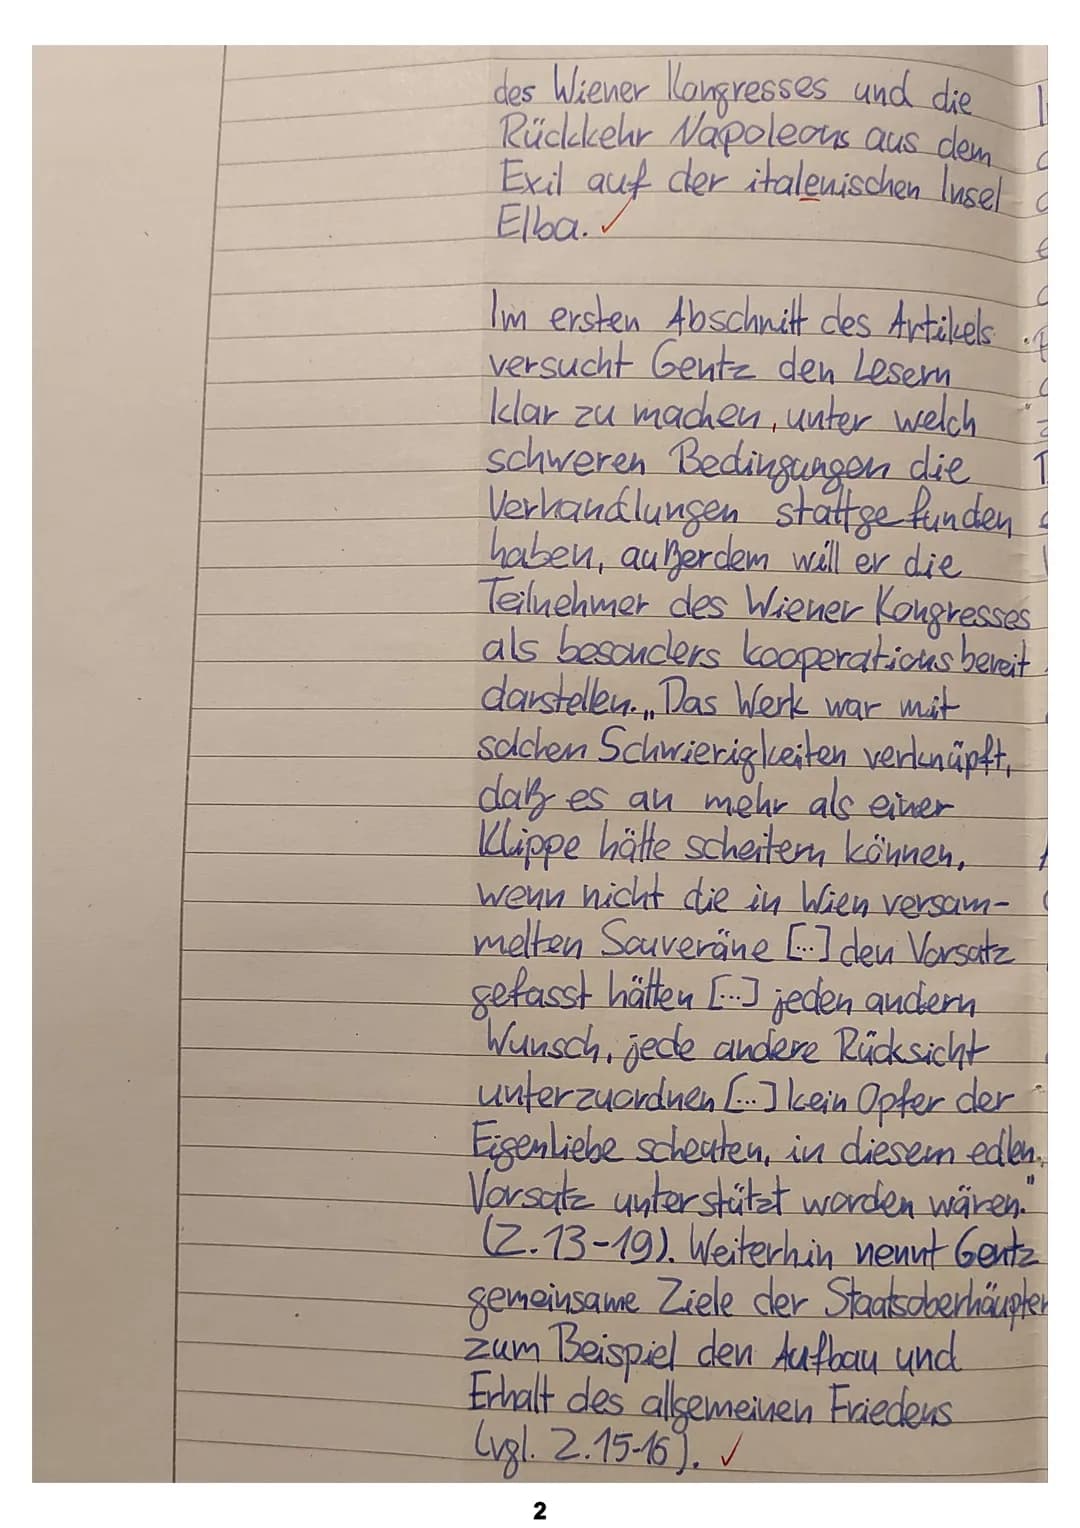 des Wiener Kongresses und die
Rückkehr Napoleons aus dem
Exil auf der italenischen Insel
Elba. ✓
Im ersten Abschnitt des Artikels
versucht Gentz den Lesern
klar zu machen, unter welch
schweren Bedingungen die
Verhandlungen stattgefunden
haben, außerdem will er die
Teilnehmer des Wiener Kongresses
als besonders kooperationsbereit
darstellen. „Das Werk war mit
solchen Schwierigkeiten verknüpft,
daß es an mehr als einer
Klippe hätte scheitern können,
wenn nicht die in Wien versam-
melten Souveräne [...] den Vorsatz
gefasst hätten [...] jeden andern
Wunsch, jede andere Rücksicht
unterzuordnen [...] kein Opfer der
Eigenliebe scheuten, in diesem edlen
Vorsatz unterstützt worden wären."
(Z. 13-19). Weiterhin nennt Gentz
gemeinsame Ziele der Staatsoberhäupter
zum Beispiel den Aufbau und
Erhalt des allgemeinen Friedens
(vgl. Z. 15-16). ✓
2